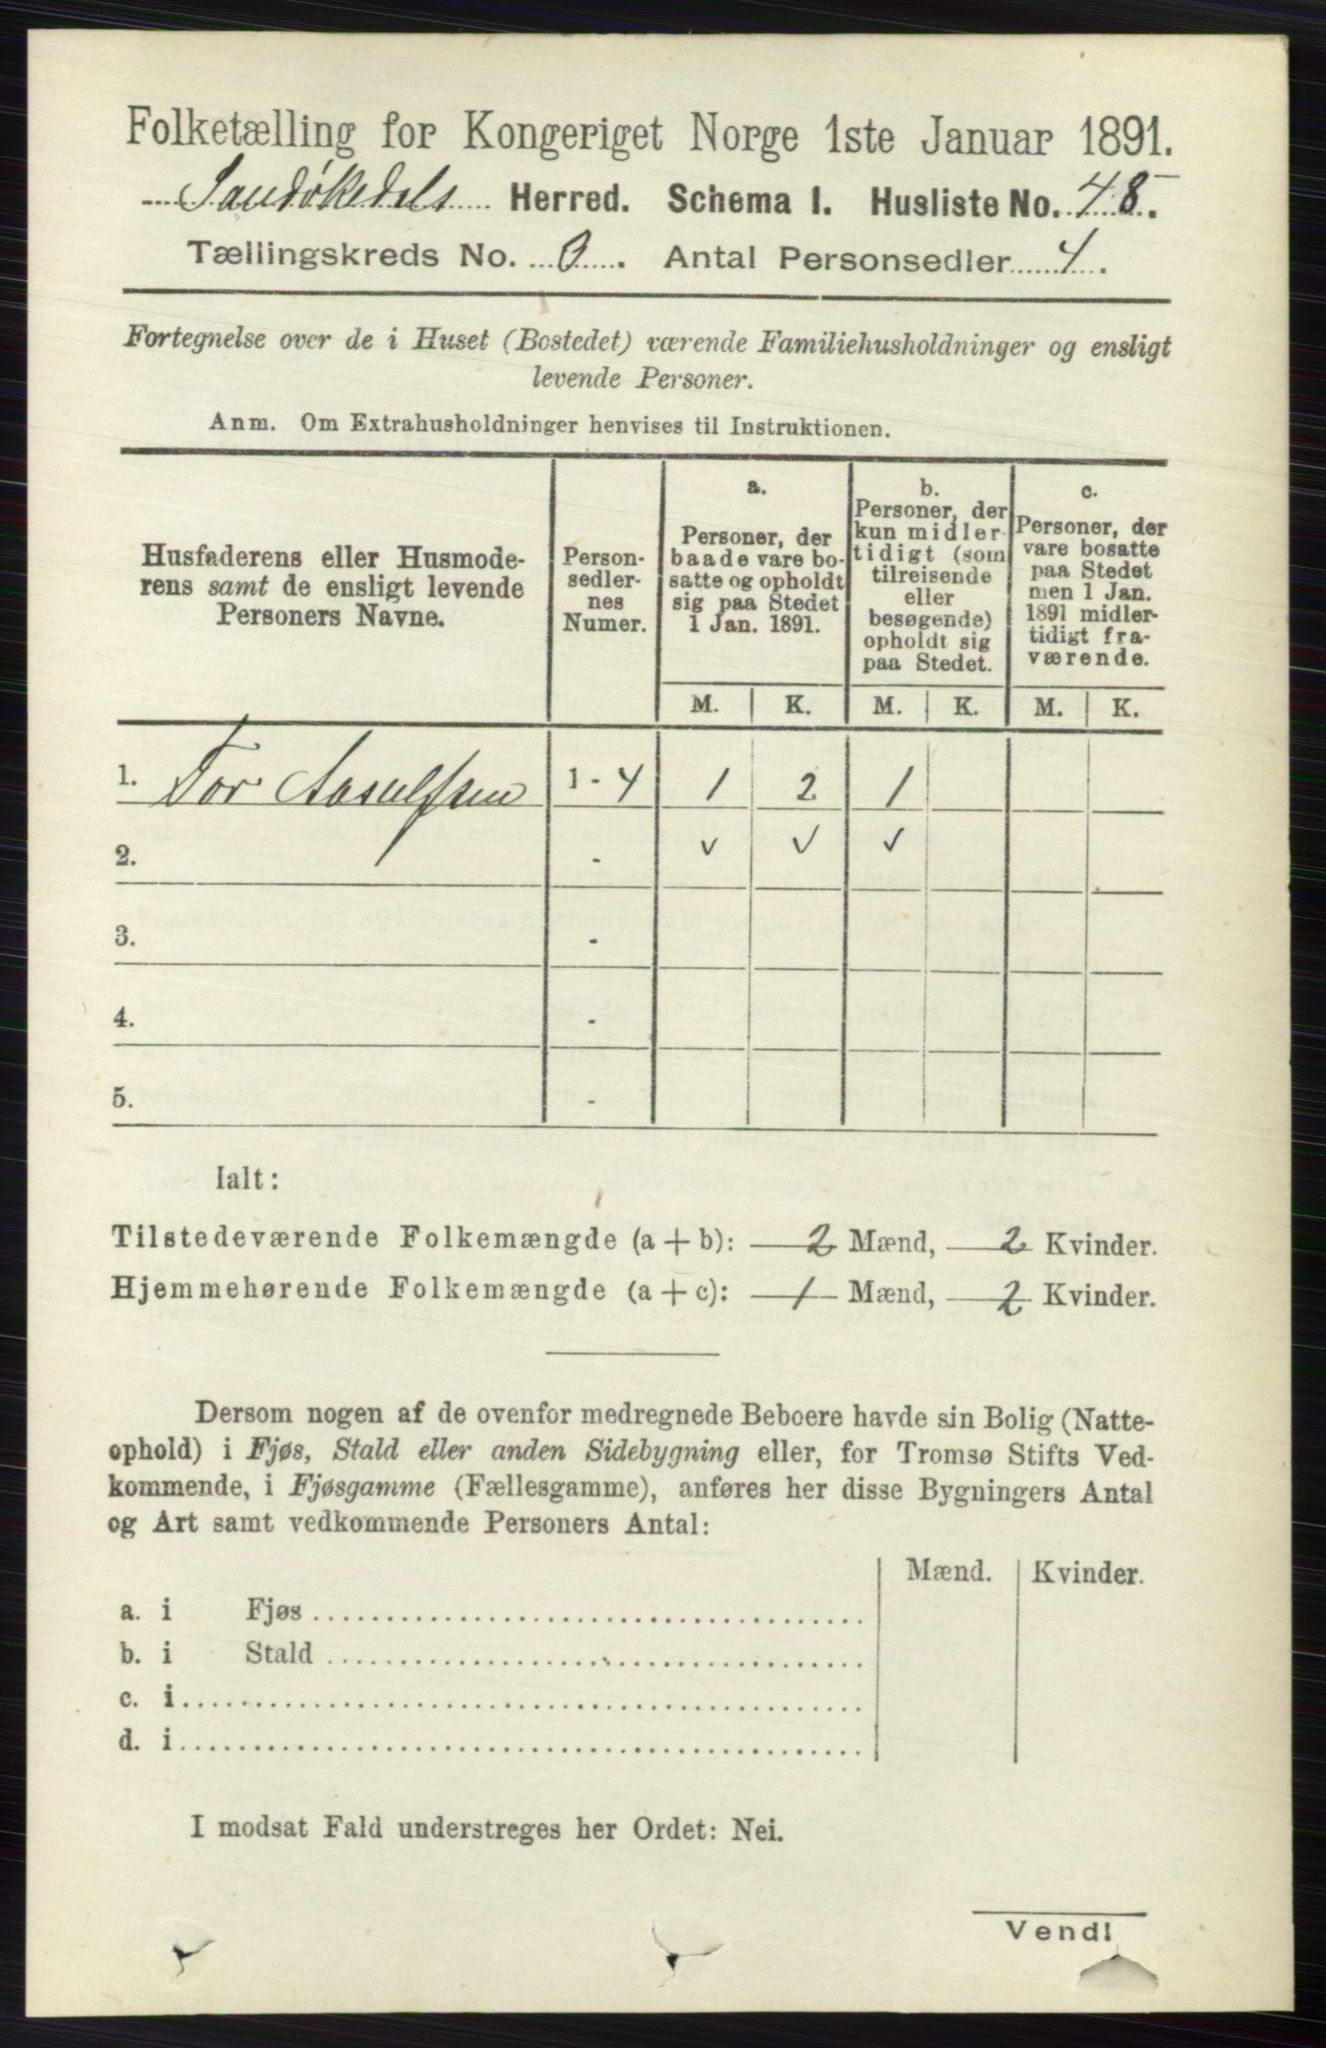 Folketælling for Kongeriget Norge 1ste Januar 1891.
Sandøkedels Herred. Schema I. Husliste No. 48.
Tællingskreds No. . Antal Personsedler 4.
Fortegnelse over de i Huset (Bostedet) værende Familiehusholdninger og ensligt
levende Personer.
Anm. Om Extrahusholdninger henvises til Instruktionen.
Husfaderens eller Husmode-
rens samt de ensligt levende
Personers Navne.
Person-
sedler-
nes
Numer.
a.
Personer, der
baade vare bo-
satte og opholdt
sig paa Stedet
1 Jan. 1891.
b.
Personer, der
kun midler-
tidigt (som
tilreisende
eller
besøgende)
opholdt sig
paa Stedet.
c.
Personer, der
vare bosatte
paa Stedet
men 1 Jan.
1891 midler-
tidigt fra-
værende.
M. K. M. K. M. K.
1. Tor Aasulfsen 1 - 4 1 2 1
2. - ✓ ✓ ✓
3. -
4. -
5. -
Ialt:
Tilstedeværende Folkemængde (a + b): 2 Mænd, 2 Kvinder.
Hjemmehørende Folkemængde (a + c): 1 Mænd, 2 Kvinder.
Dersom nogen af de ovenfor medregnede Beboere havde sin Bolig (Natte-
ophold) i Fjøs, Stald eller anden Sidebygning eller, for Tromsø Stifts Ved-
kommende, i Fjøsgamme (Fællesgamme), anføres her disse Bygningers Antal
og Art samt vedkommende Personers Antal:
Mænd. Kvinder.
a. i Fjøs
b. i Stald
c. i
d. i
I modsat Fald understreges her Ordet: Nei.
Vend!